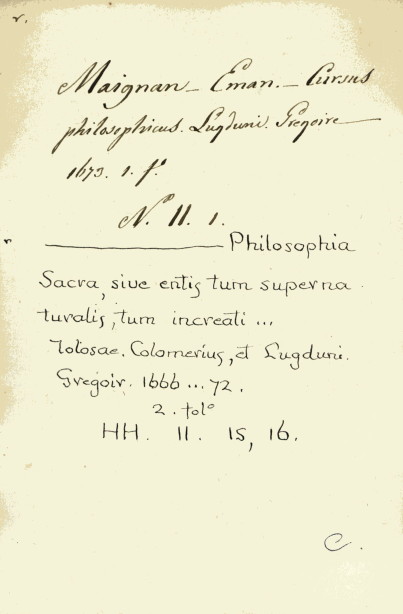 r.
Maignan - Eman. - Cursus
philosophicus. Lugduni. Gregoire
1673. 1. fº
Nº. 11. 1.
r Philosophia
Sacra, sive entis tum superna
turalis, tum increati ...
Tolosae. Colomerius, et Lugduni.
Gregoir. 1666 ... 72.
2. folº
HH. 11. 15, 16.
C.